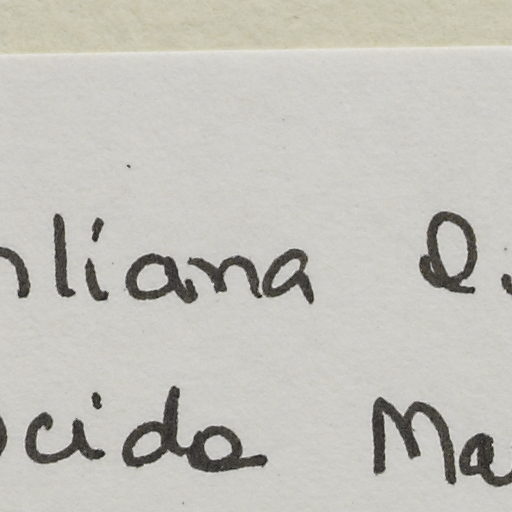 nliana D.
ocida Ma